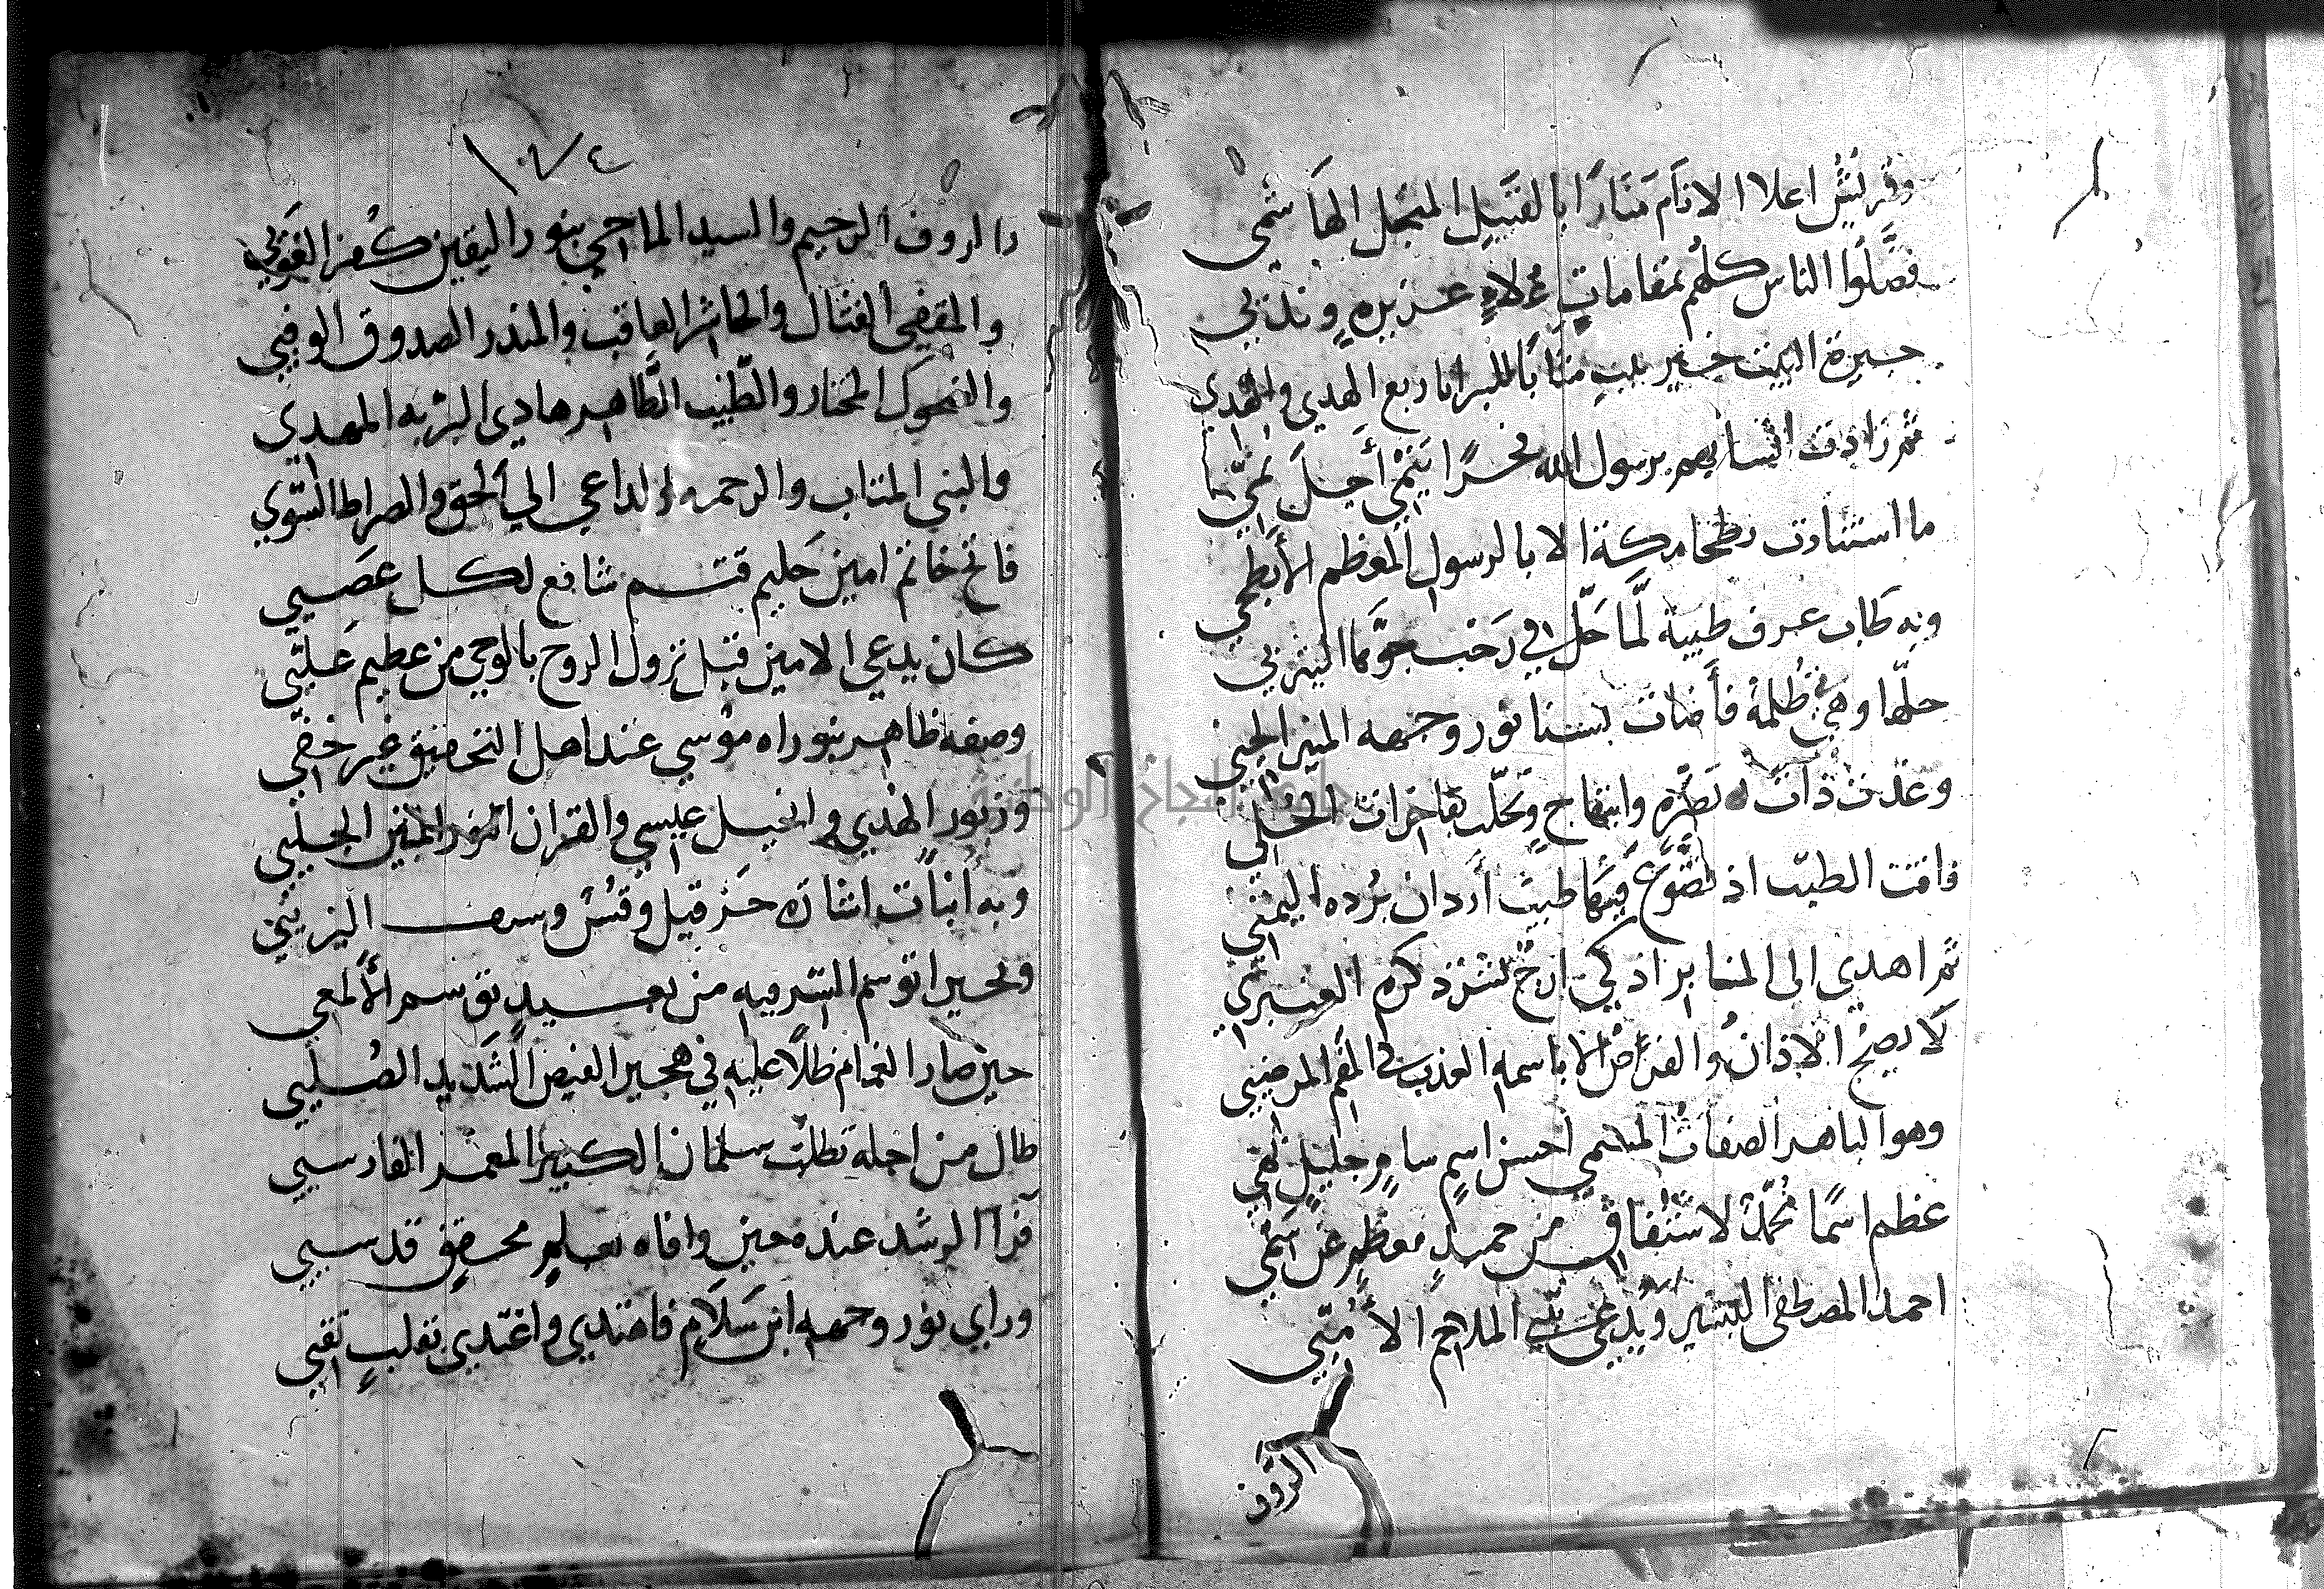 وقريش اعلا الانام منارًا بالقبيل المبجل الهاشمي
فضّلوا الناس كلهم بمقاماتٍ علاءٍ عزيزهٍ وندي
جيرة البيت خير بيت مثابًا للبرايا ربع الهدي والهدي
ثم زادت انسابهم برسول الله فخرًا ينمي أجل نمي
ما استنارت بطحا مكة الا بالرسول المعظم الأبطحي
وبه طاب عرف طيبة لمّا حلّ في رحب جوّها اليثربي
حلّها وهي في ظُلمة فأضات بسنا نور وجهه المنير الجني
وغدت ذات نضرهٍ وابتهاجٍ وتحلّت بفاخرات الحلي
فاقت الطيب اذ تضوّع فيها طيب أردان بُرده اليمني
ثم اهدي الى المنابر اذكي ارج نشر ذكره العنبري
لا يصح الاذان والفرض الا باسمه العذب في الفم المرضيي
وهو الباهر الصفات المسمي احسن اسمٍ سامٍ جليلٍ
عظم اسمًا محمّد لاشتقاق من حميدٍ معظمٍ عن سمي
احمد المصطفى البشير ويُدعي نبي الملاحم الأمّي
الرؤف
١٠٧٤
والروف الرحيم والسيد الماحي بنور اليقين كفر الغوي
والمقفي القتال والحاشر العاقب والمنذر الصدوق الوفيي
والضحوك المختار والطّيب الطّاهر هادي البريه المهدي
والنبي المتاب والرحمه والداعي الي الحق والصراط السّوي
فاتح خاتم امين حليم قثم شافع لكل عصيي
كان يدعي الامين قبل نزول الروح بالوحي من عظيم عليّ
وصفه ظاهر بتوراه موسي عند اهل التحقيق غير خفي
وزبور الهدي وانجيل عيسي والقران المبين الجليي
وبه أنبأت اشاره حزقيل وقُسّ وسيف اليزني
وبحيرا توسم السّر فيه من بعيدٍ توسم الألمعي
حين صار الغمام ظلًا عليه في هجير القيض الشديد الصليي
طال من اجله تطلب سلمان الكبير المعمر الفارسيي
فرا الرشد عنده حين وافاه بعلمٍ محققٍ قدسيي
وراي نور وجهه ابن سَلَام فاهتدي واغتدي بقلبٍ تقيي